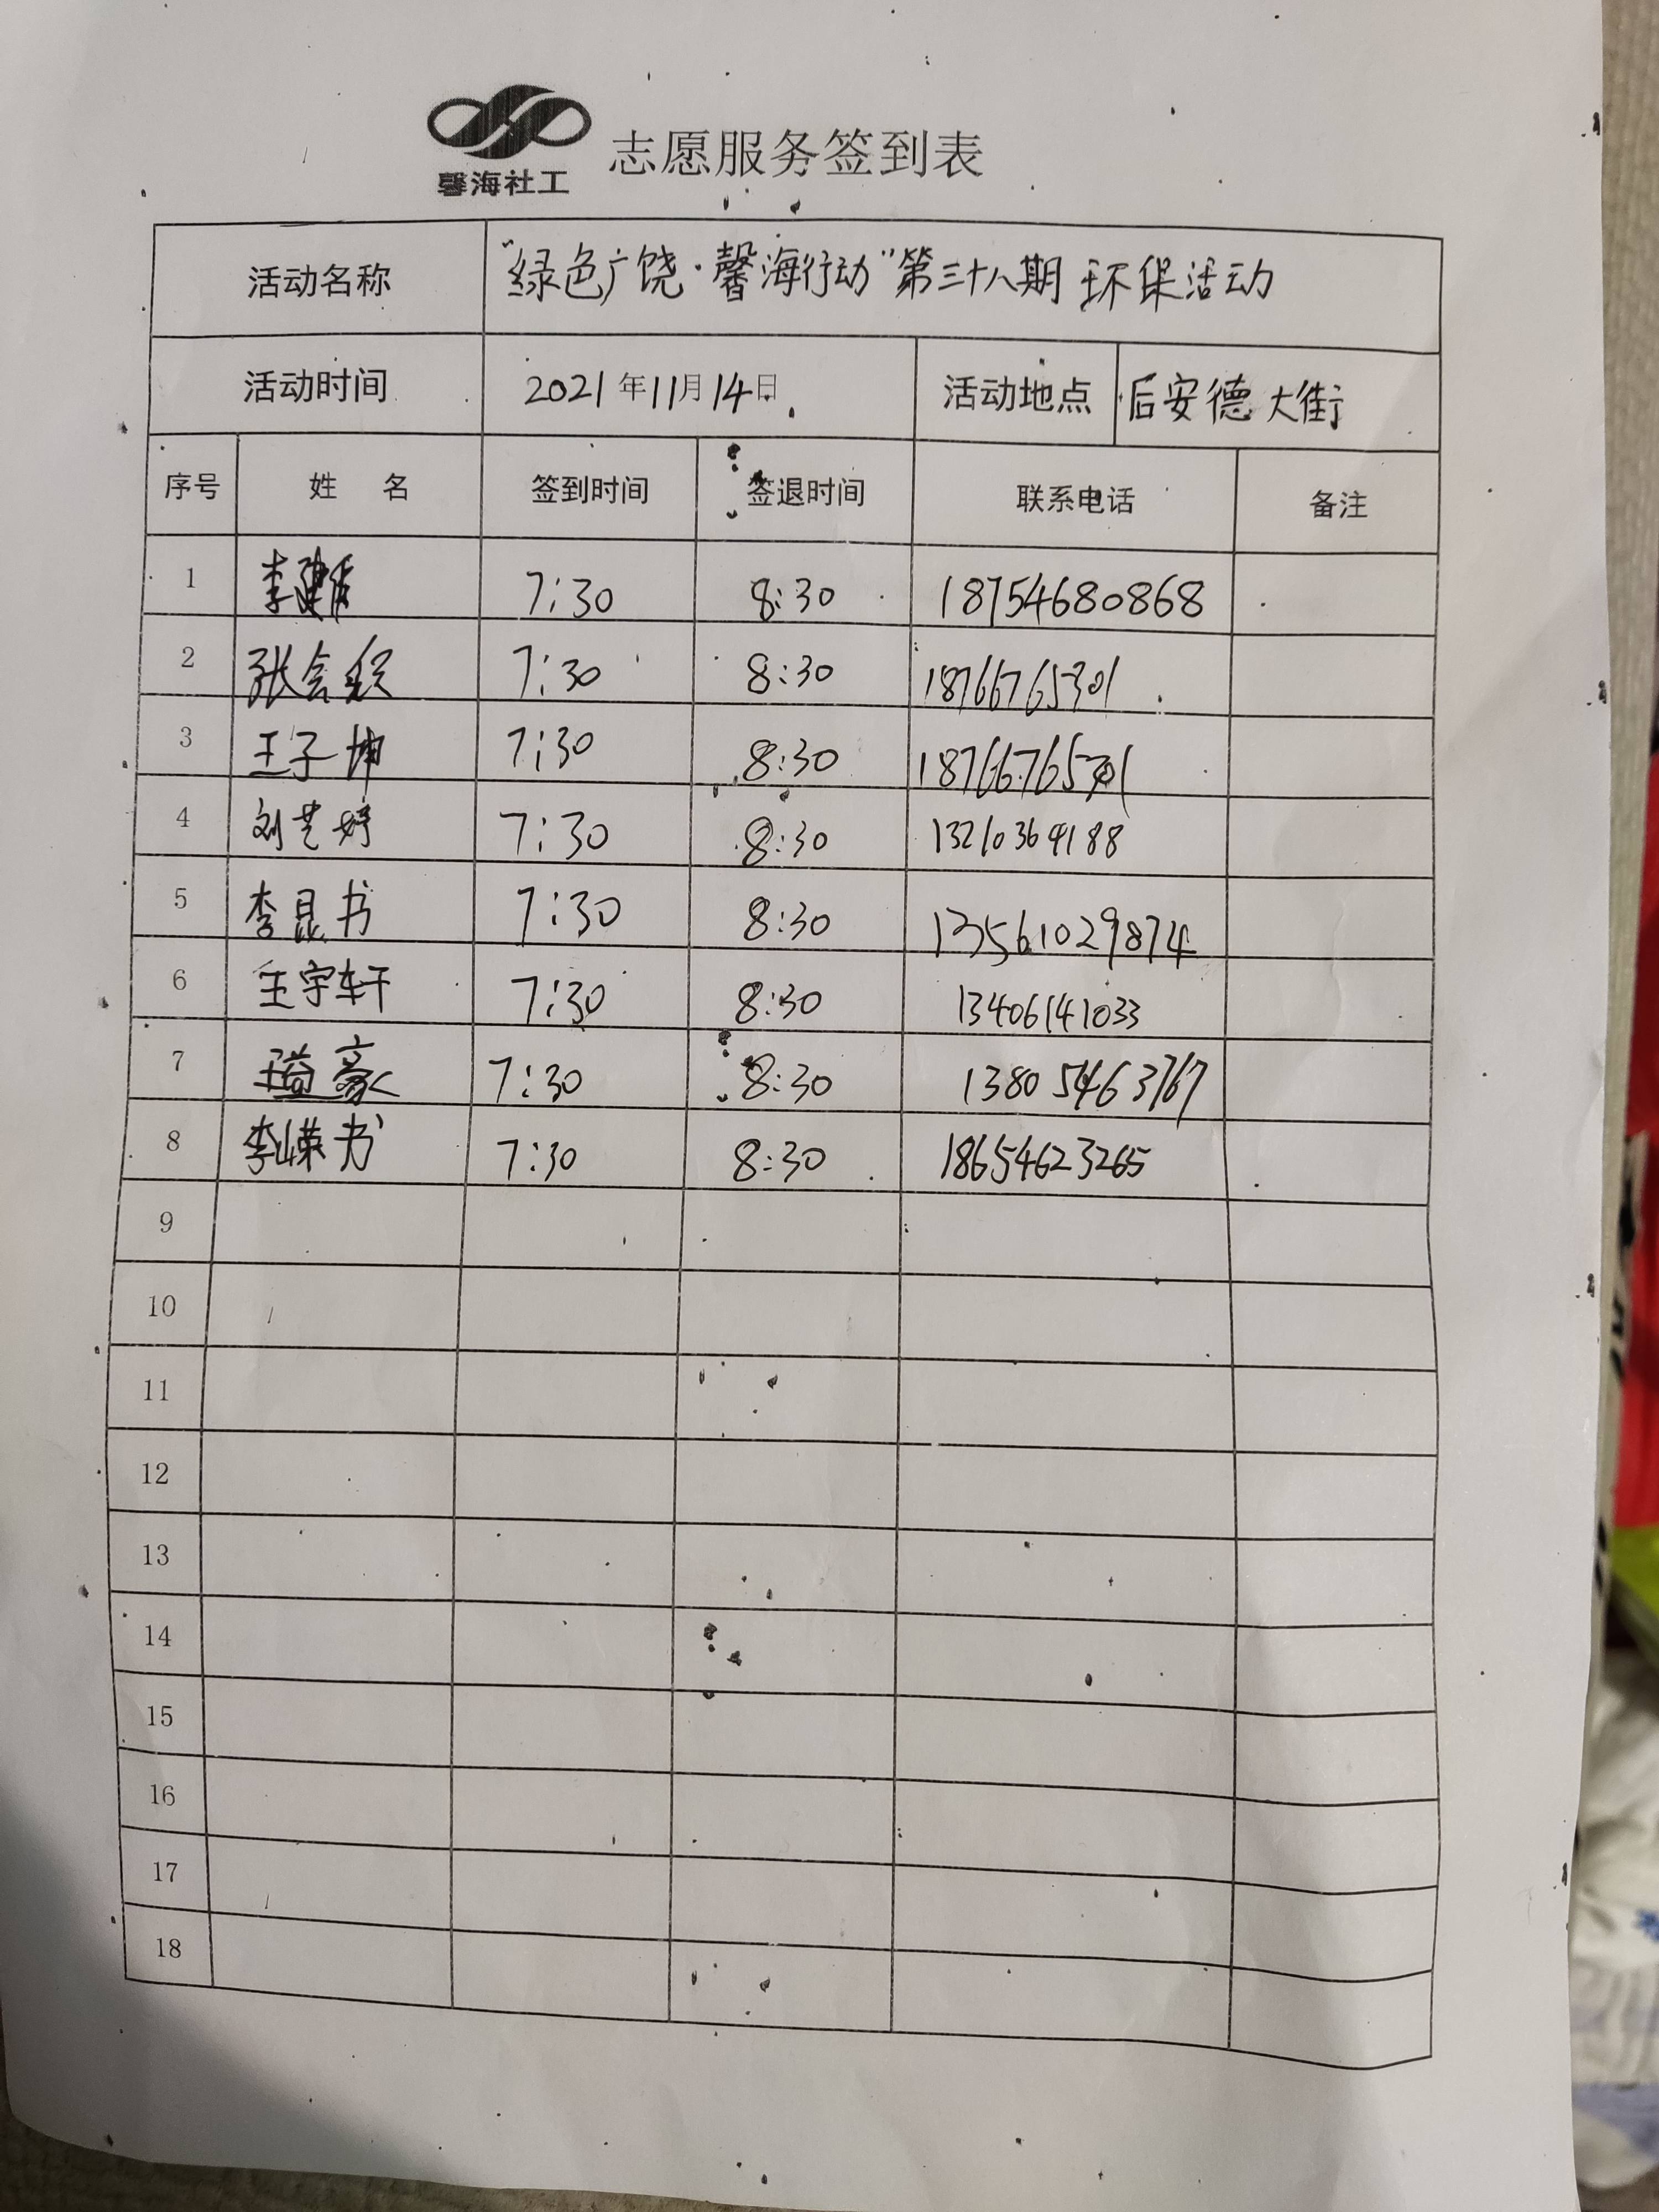 馨海社工 志愿服务签到表
活动名称 "绿色广饶·馨海行动"第三十八期 环保活动
活动时间 2021年11月14日 活动地点 后安德大街
序号 姓 名 签到时间 签退时间 联系电话 备注
1 李建 7:30 8:30 18754680868
2 张会 7:30 8:30 18766765301
3 王子坤 7:30 8:30 18766765301
4 刘艺婷 7:30 8:30 13210369188
5 李昆书 7:30 8:30 13561029874
6 王宇轩 7:30 8:30 13406141033
7 王益豪 7:30 8:30 13805463767
8 李嵘书 7:30 8:30 18654623265
9
10
11
12
13
14
15
16
17
18